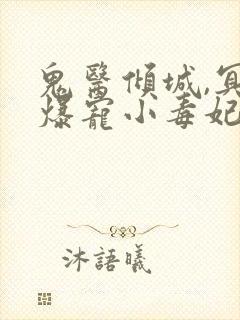 鬼醫傾城,冥
爆寵小毒妃
沐語曦